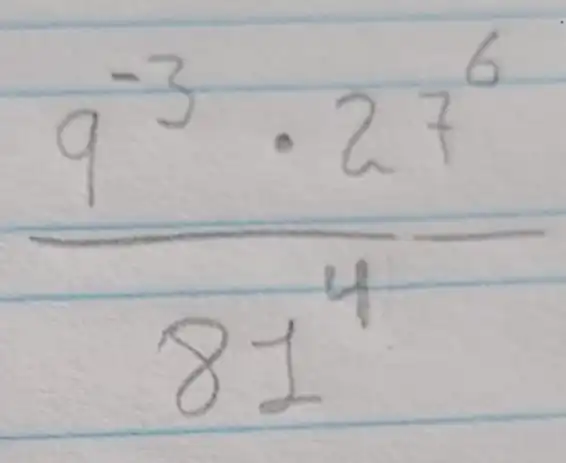 9⁻³ · 27⁶
81⁴